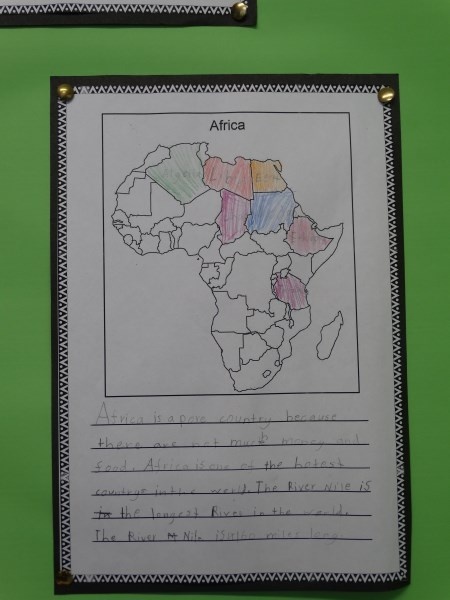 Africa
Algeria
Lib
Eg
Africa is a pore country because
there are not much money and
food. Africa is one of the hotest
countrys in the world. The River Nile is
the longest River in the world.
The River Nile is also miles long.